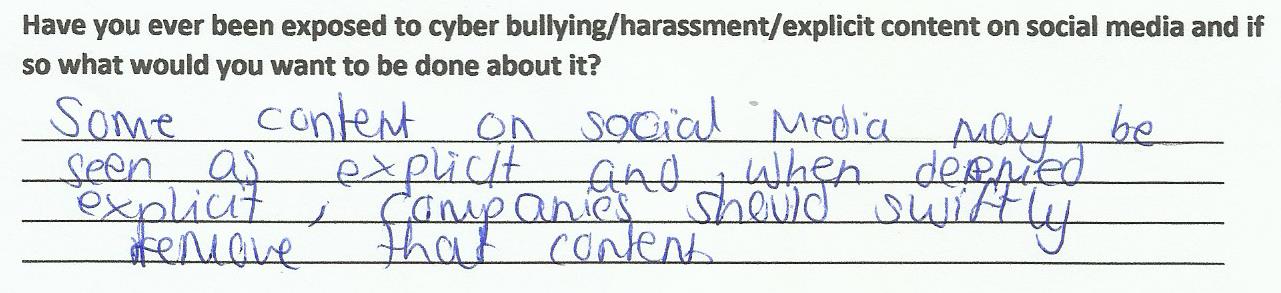 Have you ever been exposed to cyber bullying/harassment/explicit content on social media and if
so what would you want to be done about it?
Some content on social Media may be
seen as explicit and, when
explicit, companies should swiftly
remove that content